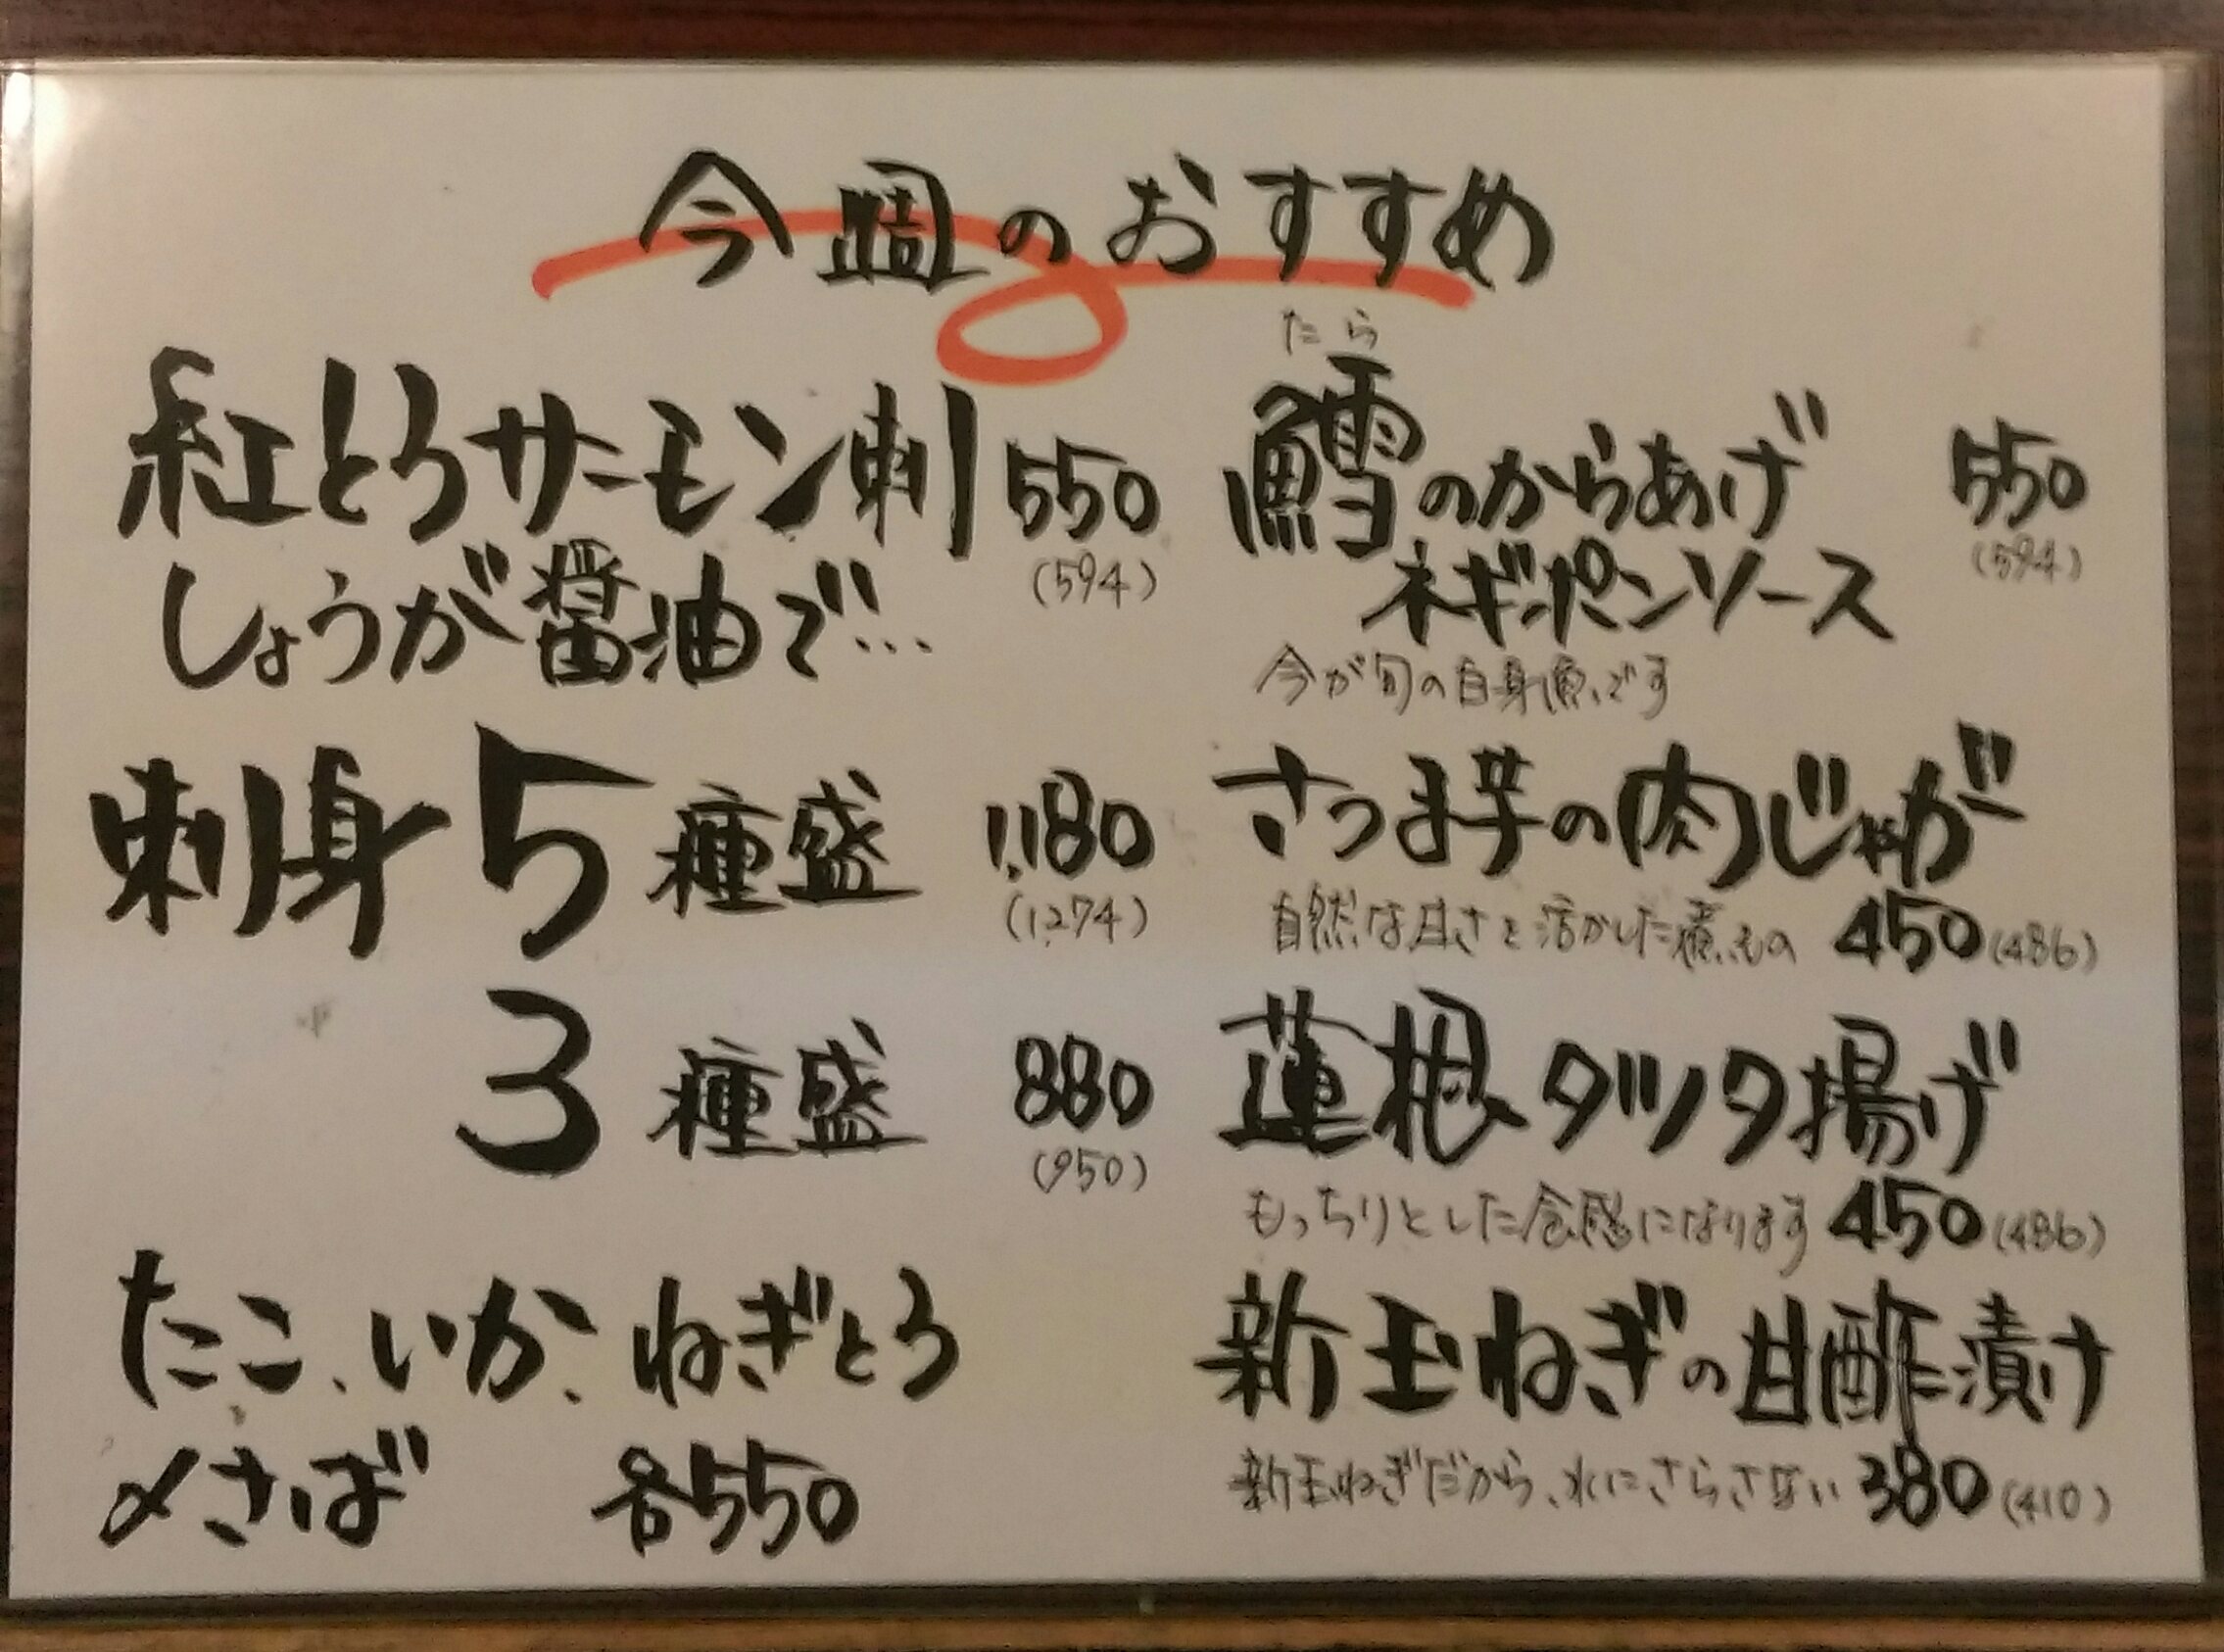 今週のおすすめ
紅とろサーモン刺 550
(594)
しょうが醤油で…
刺身5種盛 1,180
(1,274)
3種盛 880
(950)
たこ、いか、ねぎとろ
〆さば 各550
たら
鱈のからあげ 550
(594)
ネギポンソース
今が旬の白身魚です
さつま芋の肉じゃが
自然な甘さを活かした煮もの 450(486)
蓮根タツタ揚げ
もっちりとした食感になります 450(486)
新玉ねぎの甘酢漬け
新玉ねぎだから、水にさらさない 380(410)